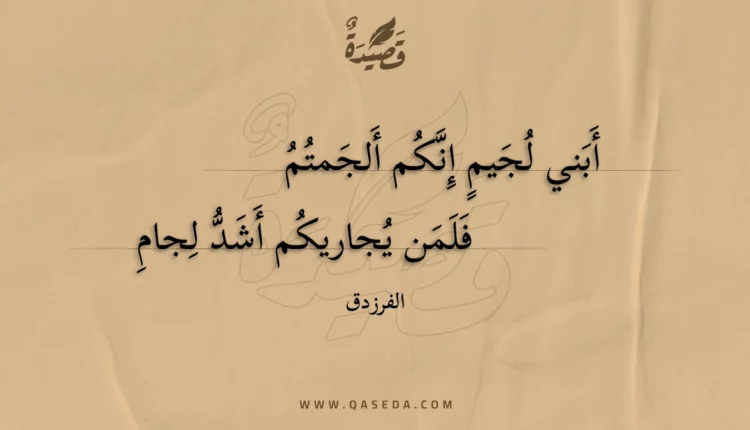 قَصِيْدَةٌ
أَبَني لُجَيمٍ إِنَّكُم أَلجَمتُمُ
فَلَمَن يُجاريكُم أَشَدُّ لِجامِ
الفرزدق
WWW.QASEDA.COM